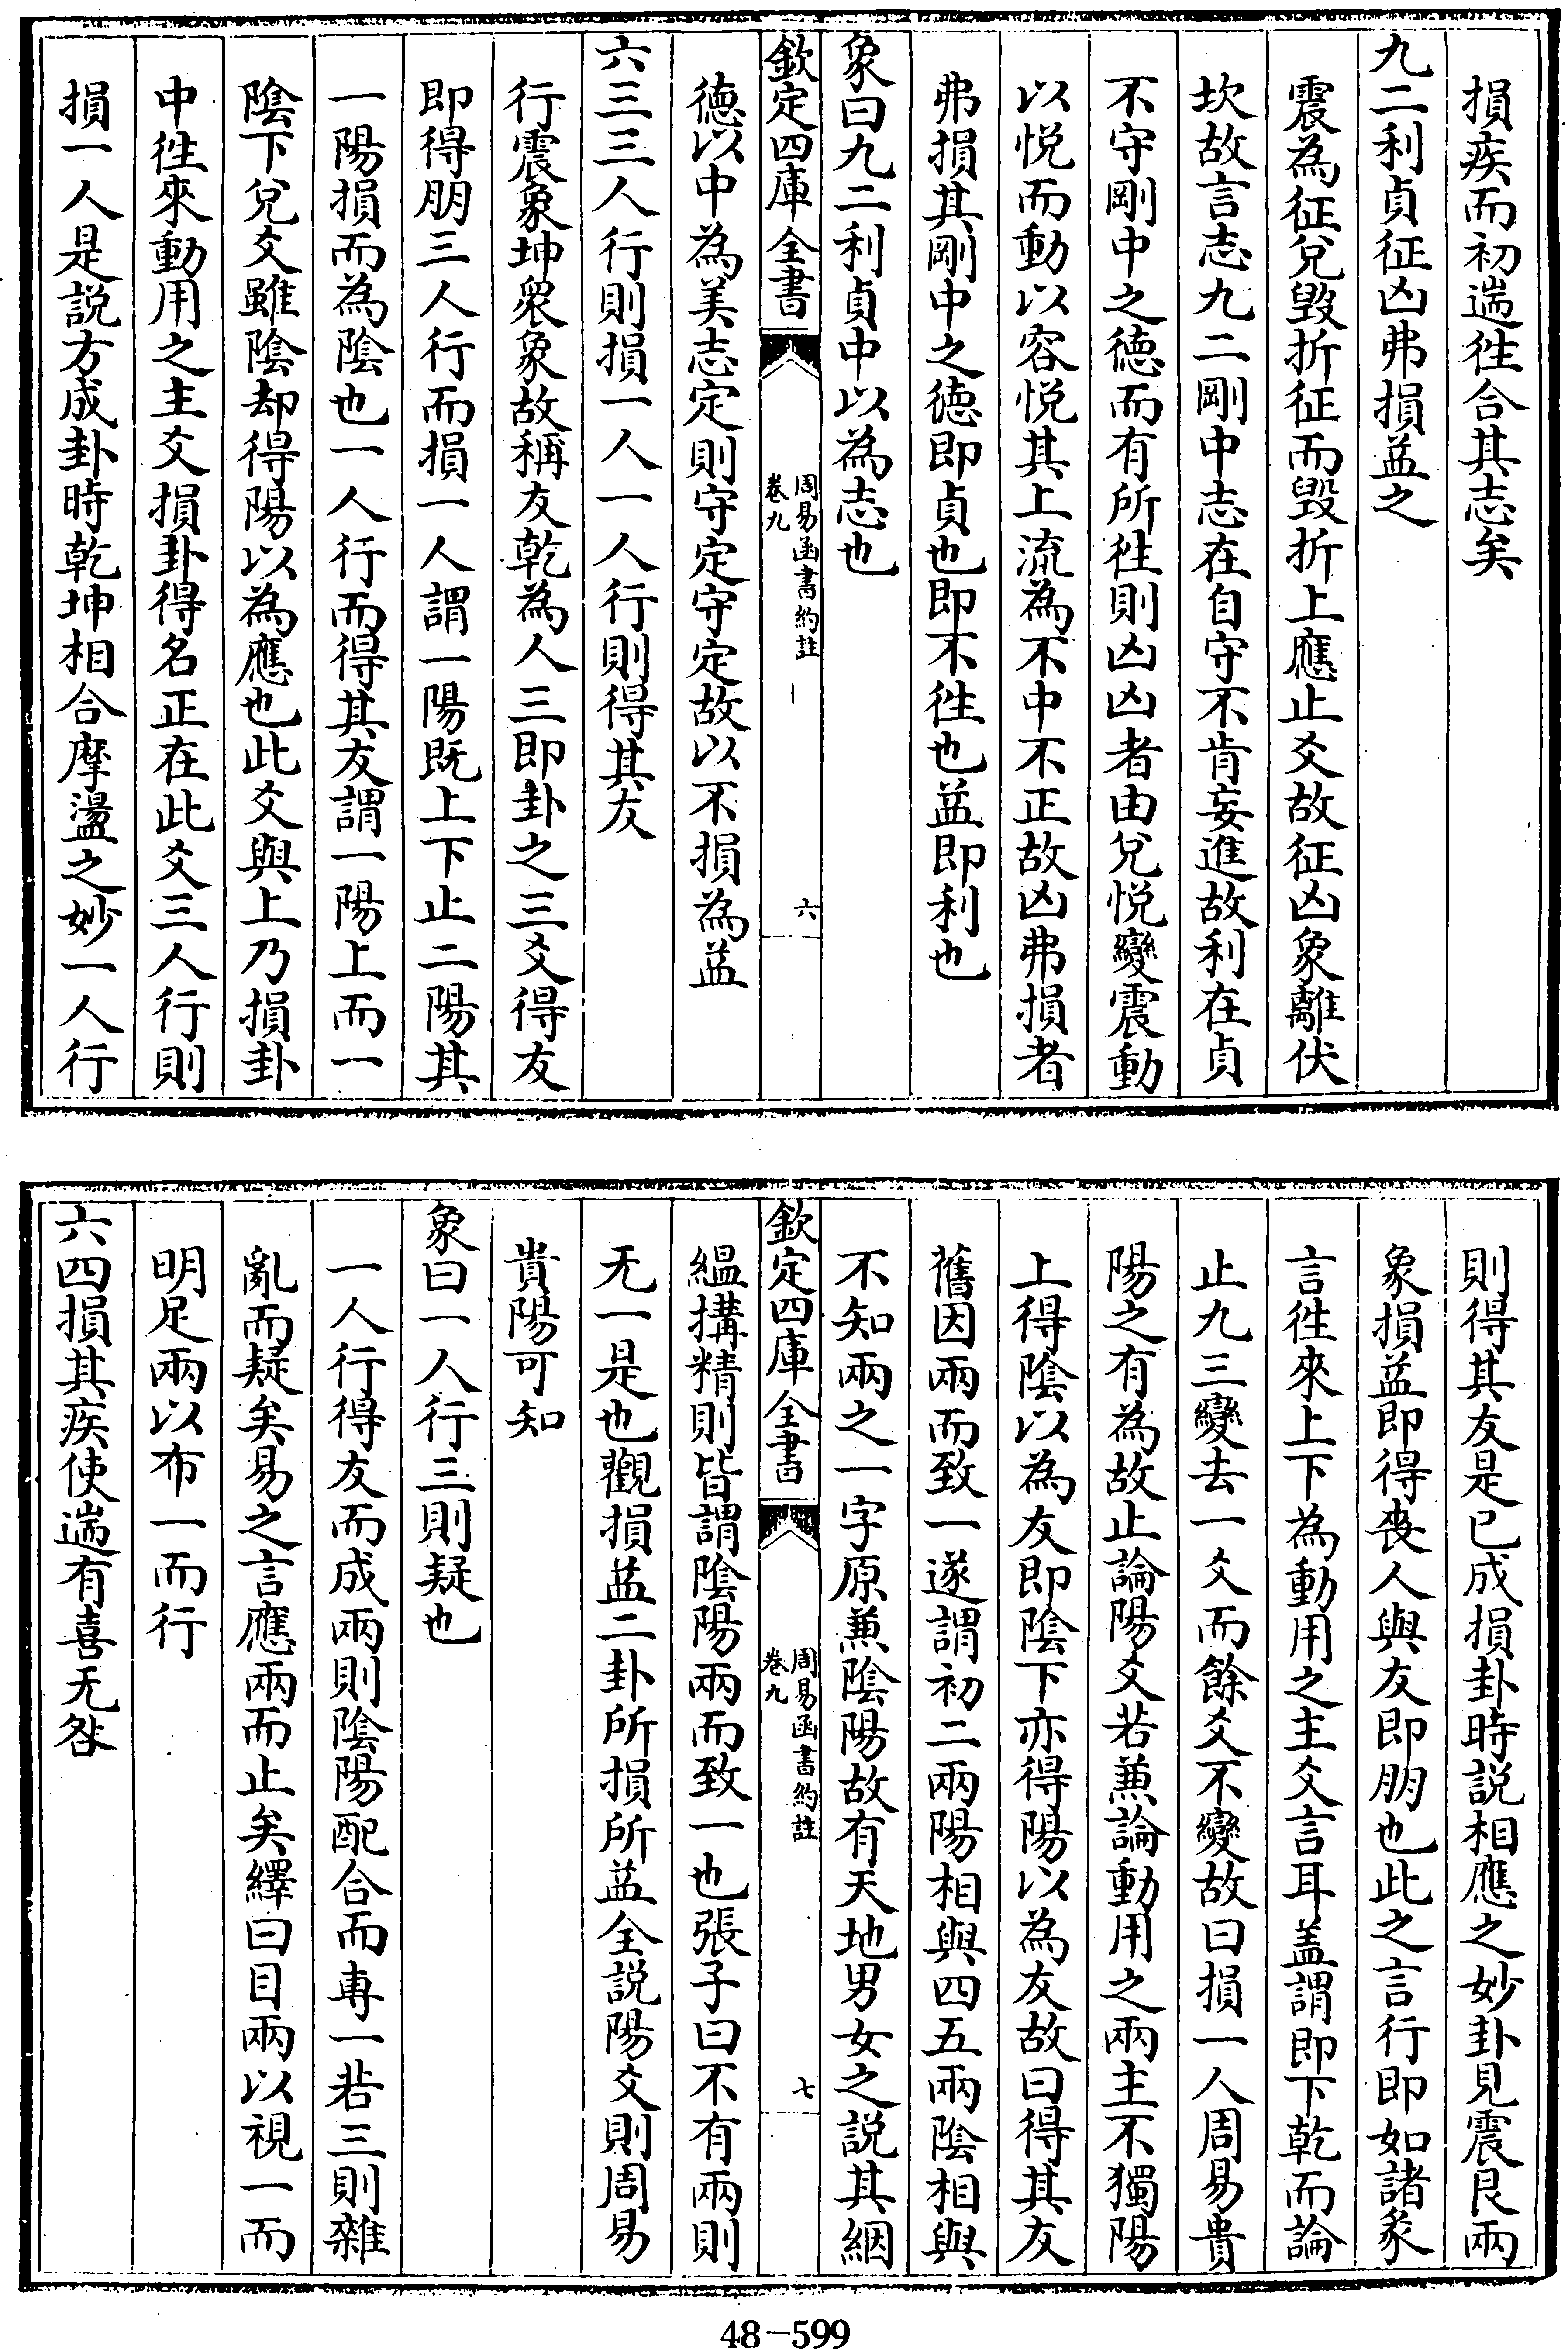 損疾而初遄徃合其志矣
九二利貞征凶弗損益之
震為征兌毁折征而毁折上應止爻故征凶象離伏
坎故言志九二剛中志在自守不肯妄進故利在貞
不守剛中之徳而有所徃則凶凶者由兌悦變震動
以悦而動以容悦其上流為不中不正故凶弗損者
弗損其剛中之徳即貞也即不徃也益即利也
象曰九二利貞中以為志也
欽定四庫全書
周易函書約註
卷九
六
徳以中為美志定則守定守定故以不損為益
六三三人行則損一人一人行則得其友
行震象坤衆象故稱友乾為人三即卦之三爻得友
即得朋三人行而損一人謂一陽既上下止二陽其
一陽損而為陰也一人行而得其友謂一陽上而一
陰下兌爻雖陰却得陽以為應也此爻與上乃損卦
中徃來動用之主爻損卦得名正在此爻三人行則
損一人是説方成卦時乾坤相合摩盪之妙一人行
則得其友是已成損卦時説相應之妙卦見震艮兩
象損益即得丧人與友即朋也此之言行即如諸彖
言徃來上下為動用之主爻言耳盖謂即下乾而論
止九三變去一爻而餘爻不變故曰損一人周易貴
陽之有為故止論陽爻若兼論動用之兩主不獨陽
上得陰以為友即陰下亦得陽以為友故曰得其友
舊因兩而致一遂謂初二兩陽相與四五兩陰相與
不知兩之一字原兼陰陽故有天地男女之説其絪
欽定四庫全書
周易函書約註
卷九
七
緼搆精則皆謂陰陽兩而致一也張子曰不有兩則
无一是也觀損益二卦所損所益全説陽爻則周易
貴陽可知
象曰一人行三則疑也
一人行得友而成兩則陰陽配合而専一若三則雜
亂而疑矣易之言應兩而止矣繹曰目兩以視一而
明足兩以布一而行
六四損其疾使遄有喜无咎
48-599